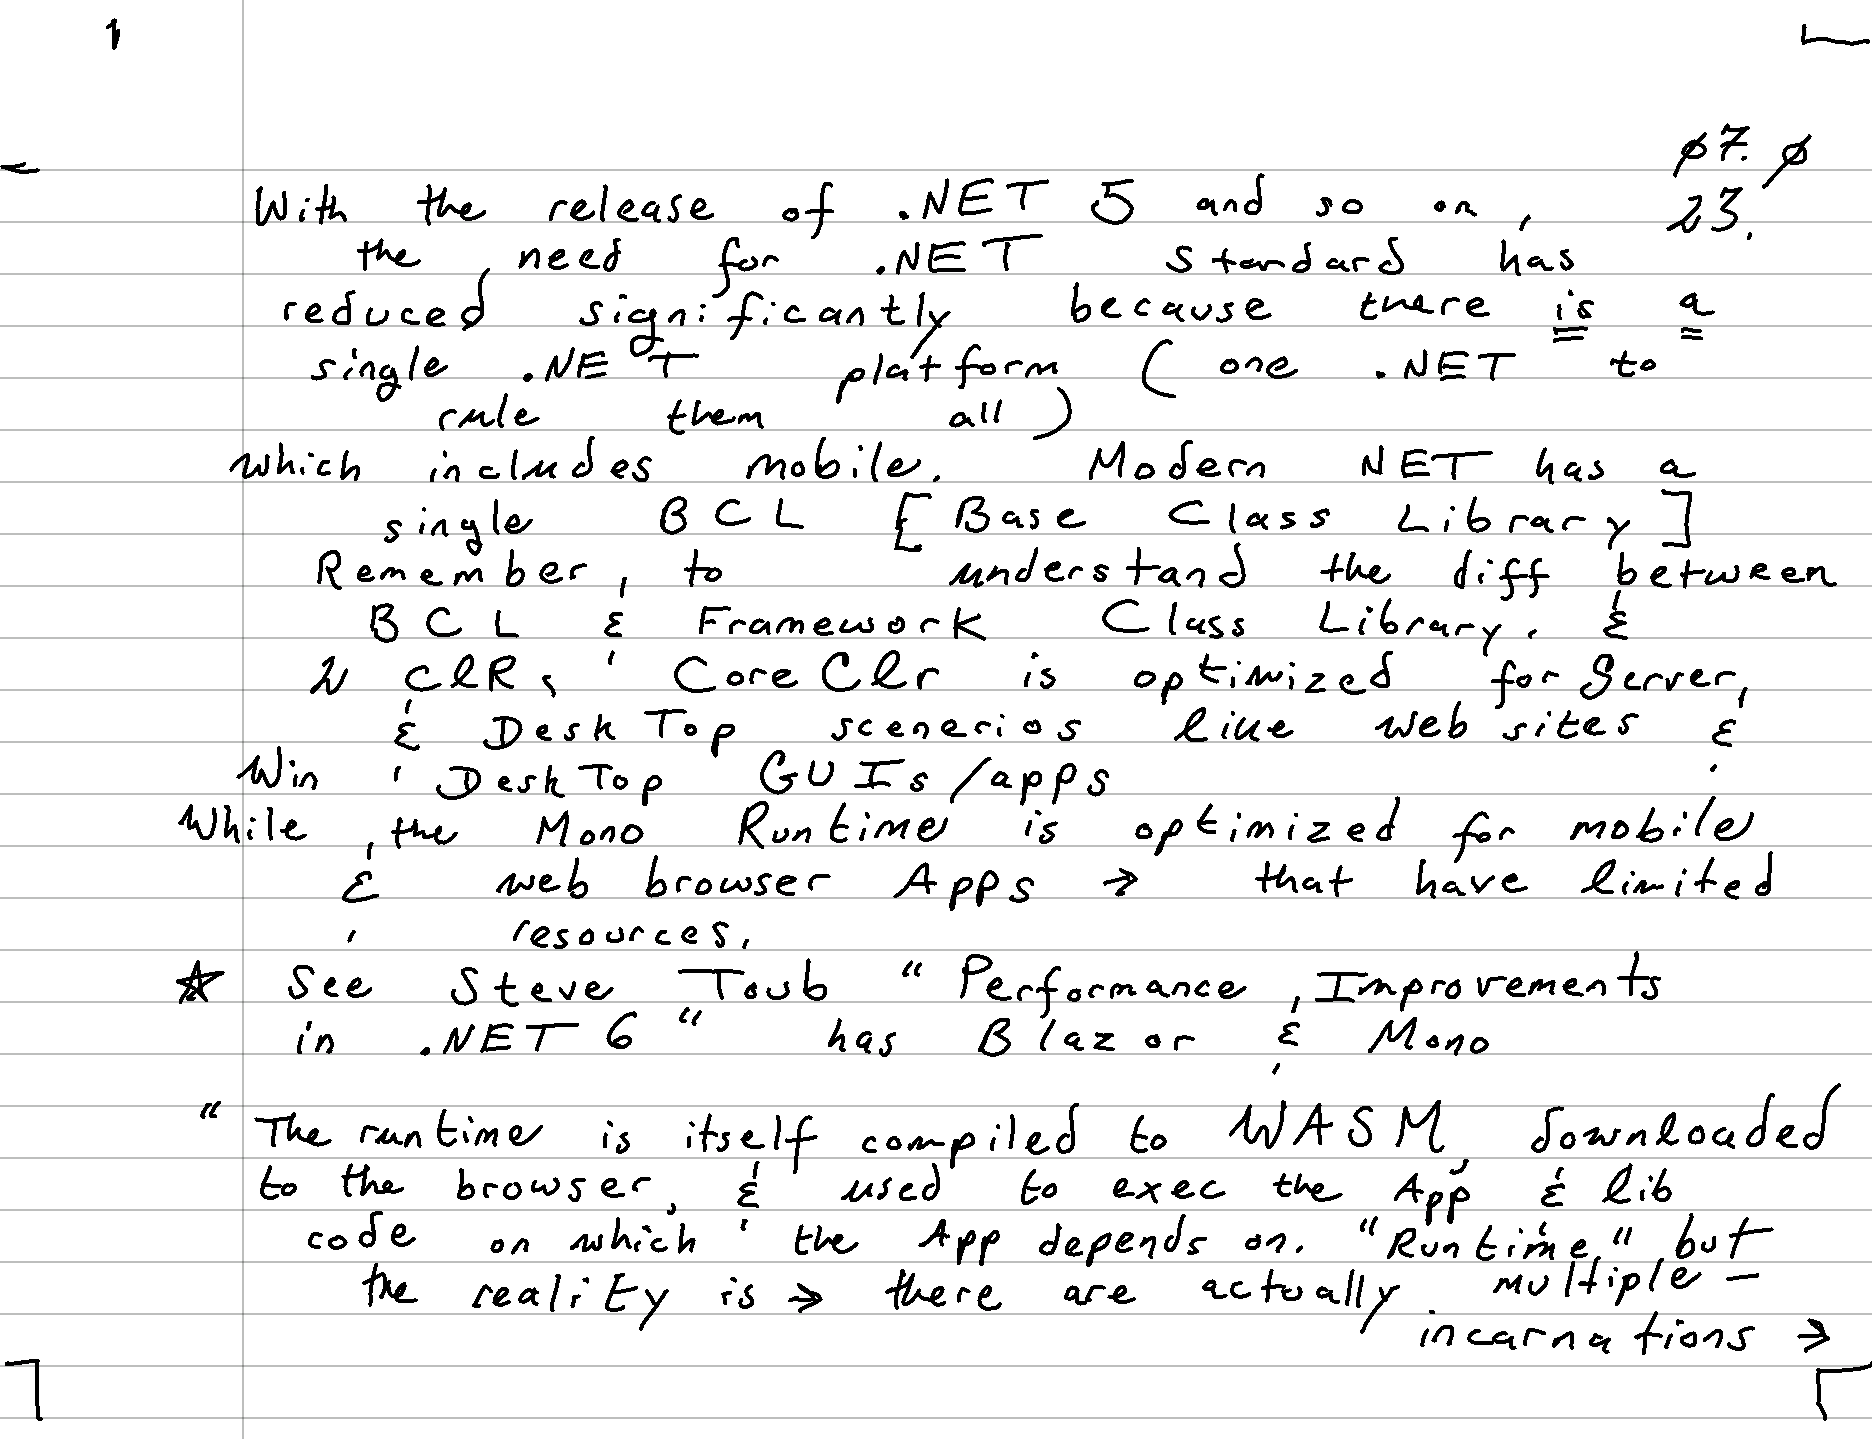 1
07. 0
With the release of .NET 5 and so on, 23.
the need for .NET Standard has
reduced significantly because there is a
single .NET platform (one .NET to
rule them all)
which includes mobile. Modern NET has a
single BCL [Base Class Library]
Remember, to understand the diff between
BCL & Framework Class Library. &
2 CLRs, CoreClr is optimized for Server,
& DeskTop scenerios like web sites &
Win DeskTop GUIs/apps
While, the Mono Runtime is optimized for mobile
& web browser Apps → that have limited
resources.
☆ See Steve Toub "Performance Improvements
in .NET 6" has Blazor & Mono
"The runtime is itself compiled to WASM, downloaded
to the browser, & used to exec the App & lib
code on which the App depends on. "Runtime," but
the reality is → there are actually multiple –
incarnations →